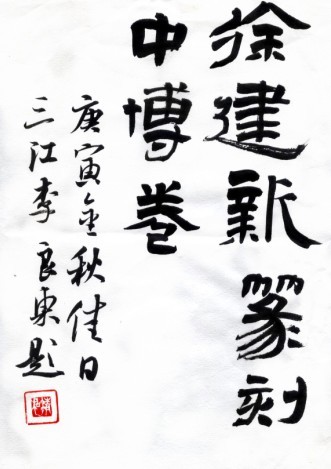 徐建新篆刻
中博卷
庚寅金秋佳日
三江李良东题